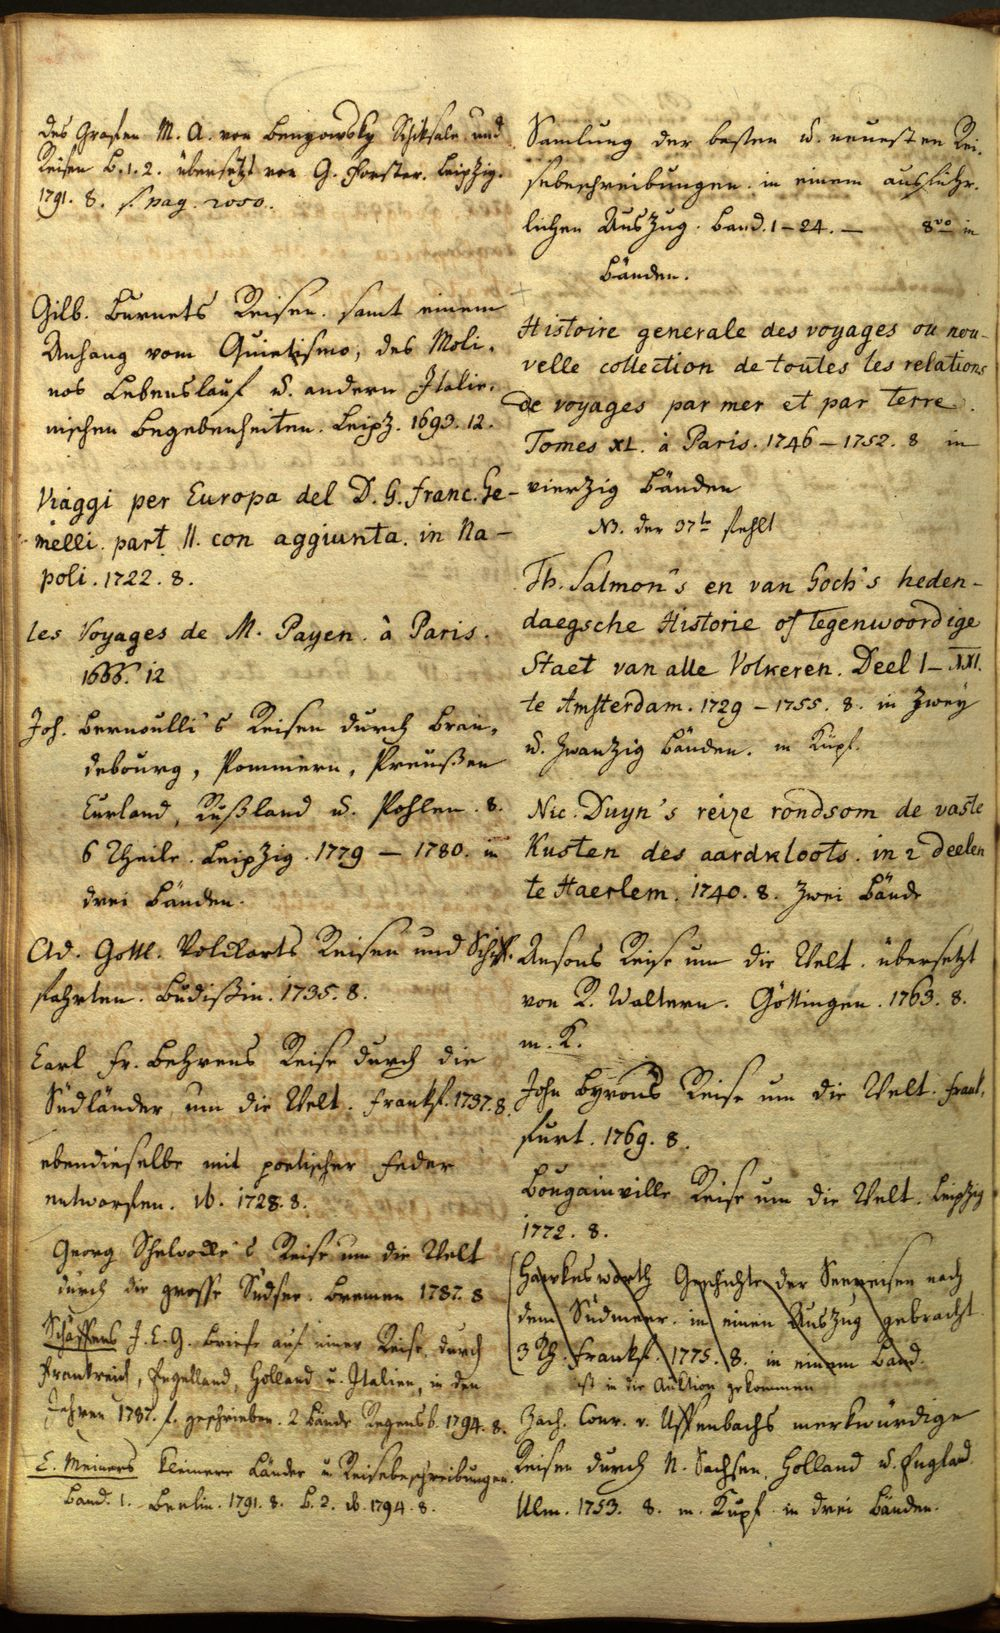 des Grafen M. A. von Benyowsky Schiksale und
Reisen B. 1. 2. übersetzt von G. Forster. Leipzig.
1791. 8. s. pag. 2050.
Gilb. Burnets Reisen. samt einem
Anhang vom Quietismo, des Moli-
nos Lebenslauf u. andern Italie-
nischen Begebenheiten. Leipz. 1693. 12.
Viaggi per Europa del D. G. Franc. Ge-
melli. part II. con aggiunta. in Na-
poli. 1722. 8.
les Voyages de M. Payen. à Paris.
1666. 12
Joh. Bernoulli's Reisen durch Bran-
debourg, Pommern, Preußen
Curland, Rußland u. Pohlen. 8.
6 Theile. Leipzig. 1779 – 1780. in
drei Bänden.
Ad. Gottl. Volckarts Reisen und Schiff-
fahrten. Budißin. 1735. 8.
Carl Fr. Behrens Reise durch die
Südländer um die Welt. Frankf. 1737. 8.
ebendieselbe mit poetischer Feder
entworfen. ib. 1728. 8.
Georg Schelvocke's Reise um die Welt
durch die grosse Südsee. Bremen 1787. 8
Schäffers J. C. G. Briefe auf einer Reise durch
Frankreich, Engelland, Holland u. Italien, in den
Jahren 1787. f. geschrieben. 2 Bände Regensb. 1794. 8.
C. Meiners kleinere Länder u. Reisebeschreibungen.
Band. 1. Berlin. 1791. 8. B. 2. ib. 1794. 8.
Samlung der besten u. neuesten Rei-
sebeschreibungen. in einem ausführ-
lichen Auszug. Band. 1 – 24. – 8vo in
Bänden.
Histoire generale des voyages ou nou-
velle collection de toutes les relations
de voyages par mer et par terre.
Tomes XL. à Paris. 1746 – 1752. 8 in
vierzig Bänden
NB. der 37te fehlt
Th. Salmon's en van Goch's heden-
daegsche Historie of tegenwoordige
Staet van alle Volkeren. Deel I – XXI.
te Amsterdam. 1729 – 1755. 8. in zwey
u. zwanzig Bänden. m Kupf.
Nic. Duyn's reize rondsom de vaste
Kusten des aardkloots. in 2 deelen
te Haerlem. 1740. 8. zwei Bände
Ansons Reise um die Welt. übersetzt
von R. Waltern. Göttingen. 1763. 8.
m. K.
John Byrons Reise um die Welt. Frank-
furt. 1769. 8.
Bougainville Reise um die Welt. Leipzig
1772. 8.
Hawkesworth Geschichte der Seereisen nach
dem Südmeer. in einen Auszug gebracht.
3 Th. Frankf. 1775. 8. in einem Band.
ist in die Auktion gekommen
Zach. Conr. v. Uffenbachs merkwürdige
Reisen durch N. Sachsen, Holland u. England
Ulm. 1753. 8. m. Kupf. in drei Bänden.